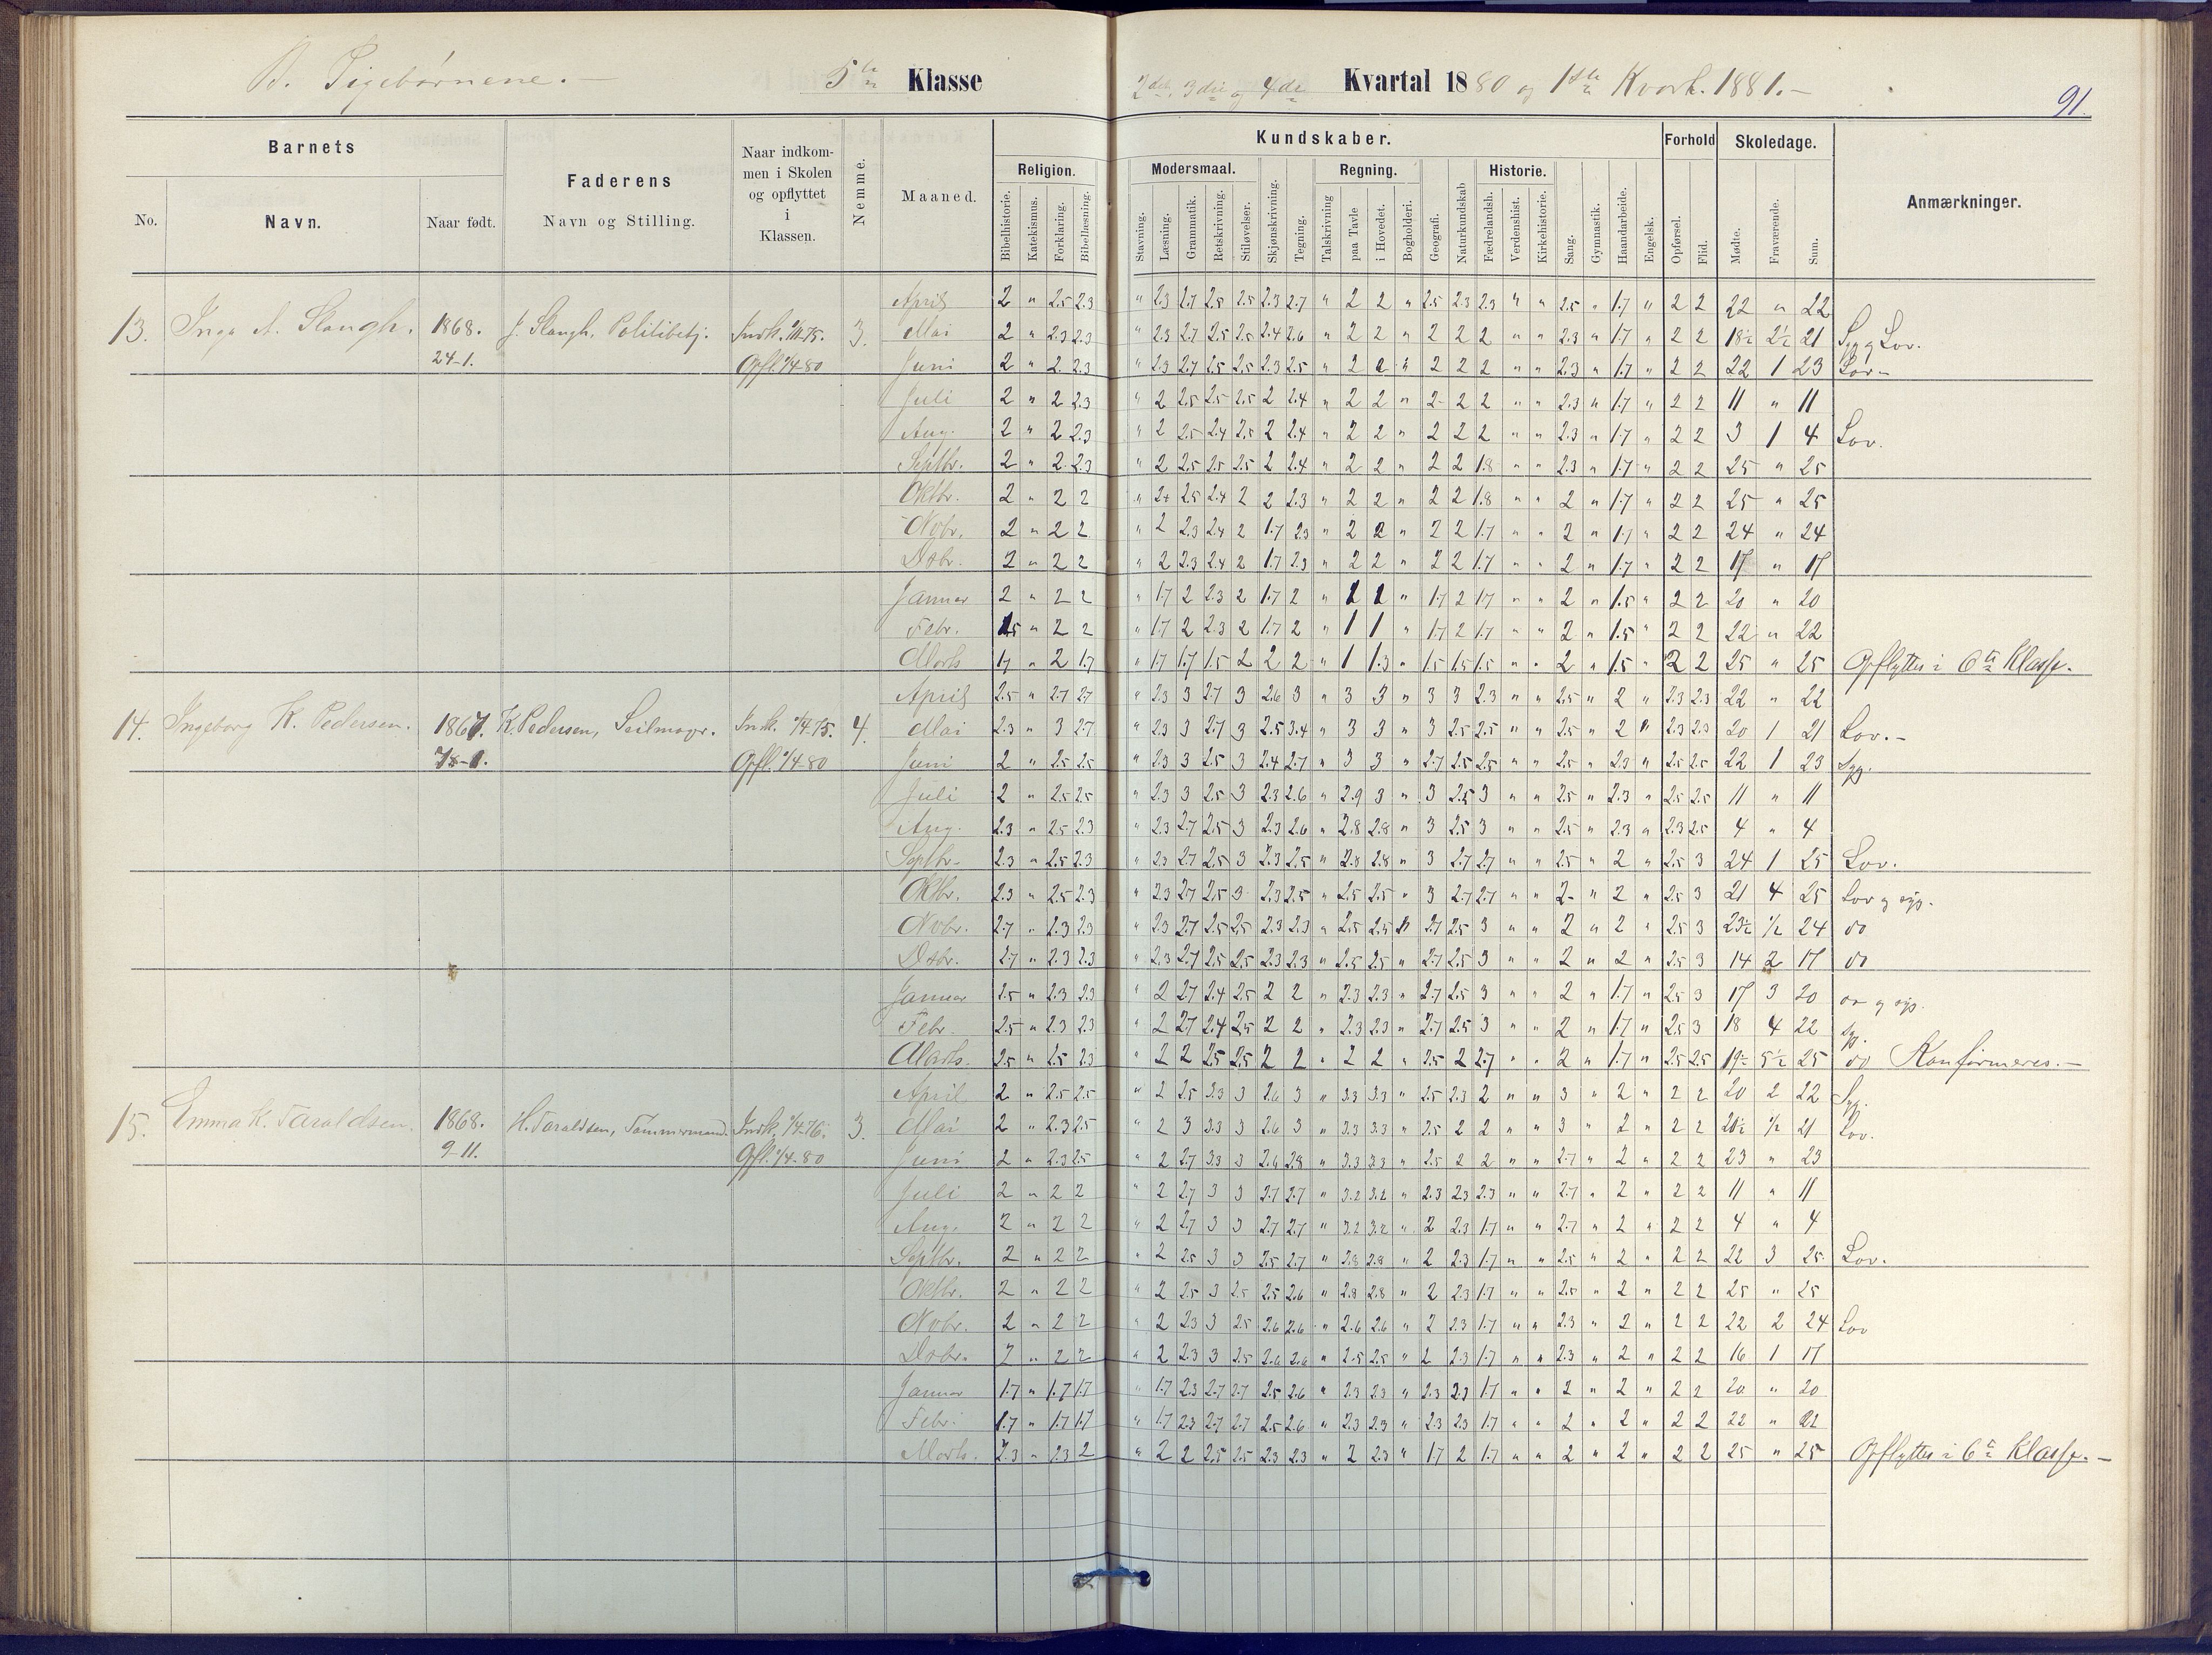 B. Pigebørnene. —
5te Klasse
2det, 3die og 4de Kvartal 1880 og 1ste Kvart. 1881. —
91.
Barnets
Faderens
Naar indkommen i Skolen og opflyttet i Klassen.
Nemme.
Maaned.
Kundskaber.
Forhold
Skoledage.
Anmærkninger.
No.
Navn.
Naar født.
Navn og Stilling.
Religion.
Modersmaal.
Regning.
Historie.
Bibelhistorie.
Katekismus.
Forklaring.
Bibellæsning.
Stavning.
Læsning.
Grammatik.
Retskrivning.
Stiløvelser.
Skjønskrivning.
Tegning.
Talskrivning
paa Tavle
i Hovedet.
Bogholderi.
Geografi.
Naturkundskab
Fædrelandsh.
Verdenshist.
Kirkehistorie.
Sang.
Gymnastik.
Haandarbeide.
Engelsk.
Opførsel.
Flid.
Mødte.
Fraværende.
Sum.
April 2 " 2.5 2.3 " 2.3 2.7 2.5 2.5 2.3 2.7 " 2 2 " 2.5 2.3 2.3 " " 2.5 " 1.7 " 2 2 22 " 22
13. Inga A. 1868. Politibetj. 3. Mai 2 " 2.3 2.3 " 2.3 2.7 2.5 2.5 2.4 2.6 " 2 2 " 2 2 2 " " 2.3 " 1.7 " 2 2 18½ 2½ 21 Syg og Lov.
24-1. Opfl. 1/4-80 Juni 2 " 2 2.3 " 2.3 2.7 2.5 2.5 2.3 2.5 " 2 2 " 2 2 2 " " 2.3 " 1.7 " 2 2 22 1 23 Lov —
Juli 2 " 2 2.3 " 2 2.5 2.5 2.5 2 2.4 " 2 2 " 2 2 2 " " 2.3 " 1.7 " 2 2 11 " 11
Aug. 2 " 2 2.3 " 2 2.5 2.4 2.5 2 2.4 " 2 2 " 2 2 2 " " 2.3 " 1.7 " 2 2 3 1 4 Lov.
Septbr. 2 " 2 2.3 " 2 2.5 2.5 2.5 2 2.4 " 2 2 " 2 2 1.8 " " 2.3 " 1.7 " 2 2 25 " 25
Oktbr. 2 " 2 2 " 2 2.5 2.4 2 2 2.3 " 2 2 " 2 2 1.8 " " 2 " 1.7 " 2 2 25 " 25
Novbr. 2 " 2 2 " 2 2.3 2.4 2 1.7 2.3 " 2 2 " 2 2 1.7 " " 2 " 1.7 " 2 2 24 " 24
Dcbr. 2 " 2 2 " 2 2.3 2.4 2 1.7 2.3 " 2 2 " 2 2 1.7 " " 2 " 1.7 " 2 2 17 " 17
Januar 2 " 2 2 " 1.7 2 2.3 2 1.7 2 " " 1.7 2 1.7 " " 2 " 1.5 " 2 2 20 " 20
Febr. 1.5 " 2 2 " 1.7 2 2.3 2 1.7 2 " 1 1 " 1.7 2 1.7 " " 2 " 1.5 " 2 2 22 " 22
Marts 1.7 " 2 1.7 " 1.7 1.7 1.5 2 2 2 " 1 1.3 " 1.5 1.5 1.5 " " 2 " 1.5 " 2 2 25 " 25 Opflyttes i 6te Klasse.
April 2.5 " 2.7 2.7 " 2.3 3 2.7 3 2.6 3 " 3 3 " 3 3 2.3 " " 2.5 " 2 " 2.3 2.3 22 " 22
14. Ingeborg K. Pedersen. 1867. K. Pedersen, Seilmager. Indk. 1/4-75. 4. Mai 2.3 " 3 2.7 " 2.3 3 2.7 3 2.5 3.4 " 3 3 " 3 2.5 2.5 " " 2.5 " 2 " 2.3 2.3 20 1 21 Lov. —
Opfl. 1/4-80 Juni 2 " 2.5 2.5 " 2.3 3 2.5 3 2.4 2.7 " 3 3 " 2.7 2.5 2.5 " " 2.5 " 2.3 " 2.5 2.5 22 1 23 Syg.
Juli 2 " 2.5 2.5 " 2.3 3 2.5 3 2.3 2.6 " 2.9 3 " 3 2.5 3 " " 2.5 " 2.3 " 2.5 2.5 11 " 11
Aug. 2.3 " 2.5 2.3 " 2.3 2.7 2.5 3 2.3 2.6 " 2.8 2.8 " 3 2.5 3 " " 2.5 " 2.3 " 2.3 2.5 4 " 4
Septbr. 2.3 " 2.5 2.3 " 2.3 2.7 2.5 3 2.3 2.5 " 2.8 2.8 " 3 2.7 2.7 " " 2.5 " 2 " 2.5 3 24 1 25 Lov.
Oktbr. 2.3 " 2.5 2.3 " 2.3 2.7 2.5 3 2.3 2.5 " 2.5 2.5 " 3 2.7 2.7 " " 2 " 2 " 2.5 3 21 4 25 Lov og syg.
Novbr. 2.7 " 2.3 2.3 " 2.3 2.7 2.5 2.5 2.3 2.3 " 2.5 2.5 " 2.7 2.5 3 " " 2 " 2 " 2.5 3 23½ ½ 24 do
Dcbr. 2.7 " 2.3 2.3 " 2.3 2.7 2.5 2.5 2.3 2.3 " 2.5 2.5 " 2.7 2.5 3 " " 2 " 2 " 2.5 3 14 2 17 do
Januar 2.5 " 2.3 2.3 " 2 2.7 2.4 2.5 2 2 " 2.3 2.3 " 2.7 2.5 3 " " 2 " 1.7 " 2.5 3 17 3 20 do og syg.
Febr. 2.5 " 2.3 2.3 " 2 2.7 2.4 2.5 2 2 " 2.3 2.3 " 2.7 2.5 3 " " 2 " 1.7 " 2.5 3 18 4 22 syg.
Marts. 2.5 " 2.5 2.3 " 2 2 2.5 2.5 2 2 " 2 2 " 2.5 2 2.7 " " 2 " 1.7 " 2.5 2.5 19½ 5½ 25 do Konfirmeres. —
April 2 " 2.5 2.5 " 2 2.5 3.3 3 2.6 3 " 3.3 3.3 " 2.5 2.3 2 " " 3 " 2 " 2 2 20 2 22 Syg.
15. Emma K. Taraldsen. 1868. H. Taraldsen, Tømmermand. Indk. 1/4-76. 3. Mai 2 " 2.3 2.5 " 2 3 3.3 3 2.6 3 " 3.3 3.3 " 2.5 2 2 " " 3 " 2 " 2 2 20½ ½ 21 Lov.
9-11. Opfl. 1/4-80 Juni 2 " 2.3 2.5 " 2 2.7 3.3 3 2.6 2.8 " 3.3 3.3 " 2.5 2 2 " " 2.7 " 2 " 2 2 23 " 23
Juli 2 " 2 2 " 2 2.7 3 3 2.7 2.7 " 3.2 3.2 " 2.3 2.3 2.3 " " 2.7 " 2 " 2 2 11 " 11
Aug. 2 " 2 2 " 2 2.7 3 3 2.7 2.7 " 3.2 3.2 " 2 2.3 1.7 " " 2.7 " 2 " 2 2 4 " 4
Septbr. 2 " 2 2 " 2 2.5 3 3 2.5 2.7 " 2.8 2.8 " 2 2.3 1.7 " " 2.5 " 2 " 2 2 22 3 25 Lov.
Oktbr. 2 " 2 2 " 2 2.5 3 2.5 2.5 2.6 " 2.8 2.8 " 2 2.3 1.7 " " 2.5 " 2 " 2 2 25 " 25
Novbr. 2 " 2 2 " 2 2.3 3 2.5 2.6 2.6 " 2.6 2.6 " 2 2.3 1.7 " " 2.3 " 2 " 2 2 22 2 24 Lov
Dcbr. 2 " 2 2 " 2 2.3 3 2.5 2.6 2.6 " 2.5 2.5 " 2 2.3 1.7 " " 2.3 " 2 " 2 2 16 1 17
Januar 1.7 " 1.7 1.7 " 1.7 2.3 2.7 2.7 2.5 2.6 " 2.3 2.3 " 2.3 2.3 1.7 " " 2 " 2 " 2 2 20 " 20
Febr. 1.7 " 1.7 1.7 " 1.7 2.3 2.7 2.7 2.5 2.6 " 2.3 2.3 " 2.3 2.3 1.7 " " 2 " 2 " 2 2 22 " 22
Marts. 2.3 " 2.3 2 " 2 2 2.5 2.5 2.3 2.3 " 2 2.3 " 1.7 2 1.7 " " 2 " 2 " 2 2 25 " 25 Opflyttes i 6te Klasse. —